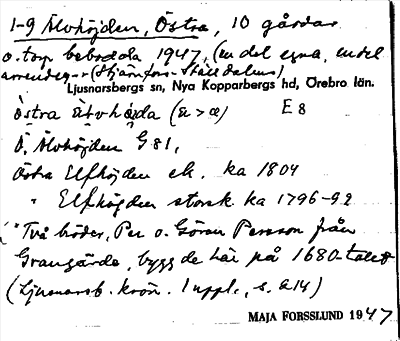 1-9 Älvhöjden, Östra, 10 gårdar
o. torp bebodda 1947, (en del egna, en del
arrende - (Stjärnfors-Ställdalens)
Ljusnarsbergs sn, Nya Kopparbergs hd, Örebro län.
östra (a > æ) E 8
Ö. Älvhöjden G 81,
Östra Elfhöjden ek. ka 1804
" Elfhöjden storsk ka 1796-92
"Två bröder, Per o. Göran Persson från
Grangärde, byggde här på 1680-talet
(Ljusnarsb. krön. 1 uppl., s. 214)
MAJA FORSSLUND 1947